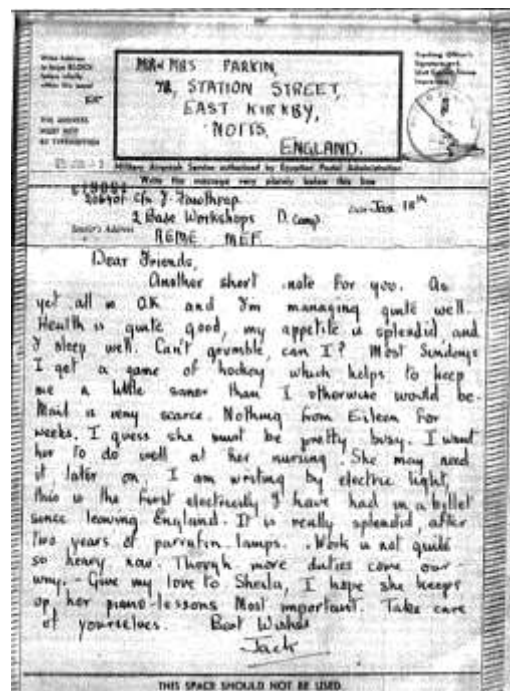 MR & MRS PARKIN,
78, STATION STREET,
EAST KIRKBY,
NOTTS,
ENGLAND.
Military Airgraph Service authorized by Egyptian Postal Administration
Write the message very plainly below this line
2 Base Workshops D. Camp
Jan 18th
Sender's Address
REME MEF
Dear Friends,
Another short note for you. As
yet all is OK and I'm managing quite well.
Health is quite good, my appetite is splendid and
I sleep well. Can't grumble, can I? Most Sundays
I get a game of hockey which helps to keep
me a little saner than I otherwise would be.
Mail is very scarce. Nothing from Eileen for
weeks. I guess she must be pretty busy. I want
her to do well at her nursing. She may need
it, later on. I am writing by electric light,
this is the first electricity I have had in a billet
since leaving England. It is really splendid after
two years of parrafin lamps. Work is not quite
so heavy now. Though more duties come our
way. - Give my love to Sheila, I hope she keeps
up her piano-lessons Most important. Take care
of yourselves. Best Wishes
Jack
THIS SPACE SHOULD NOT BE USED